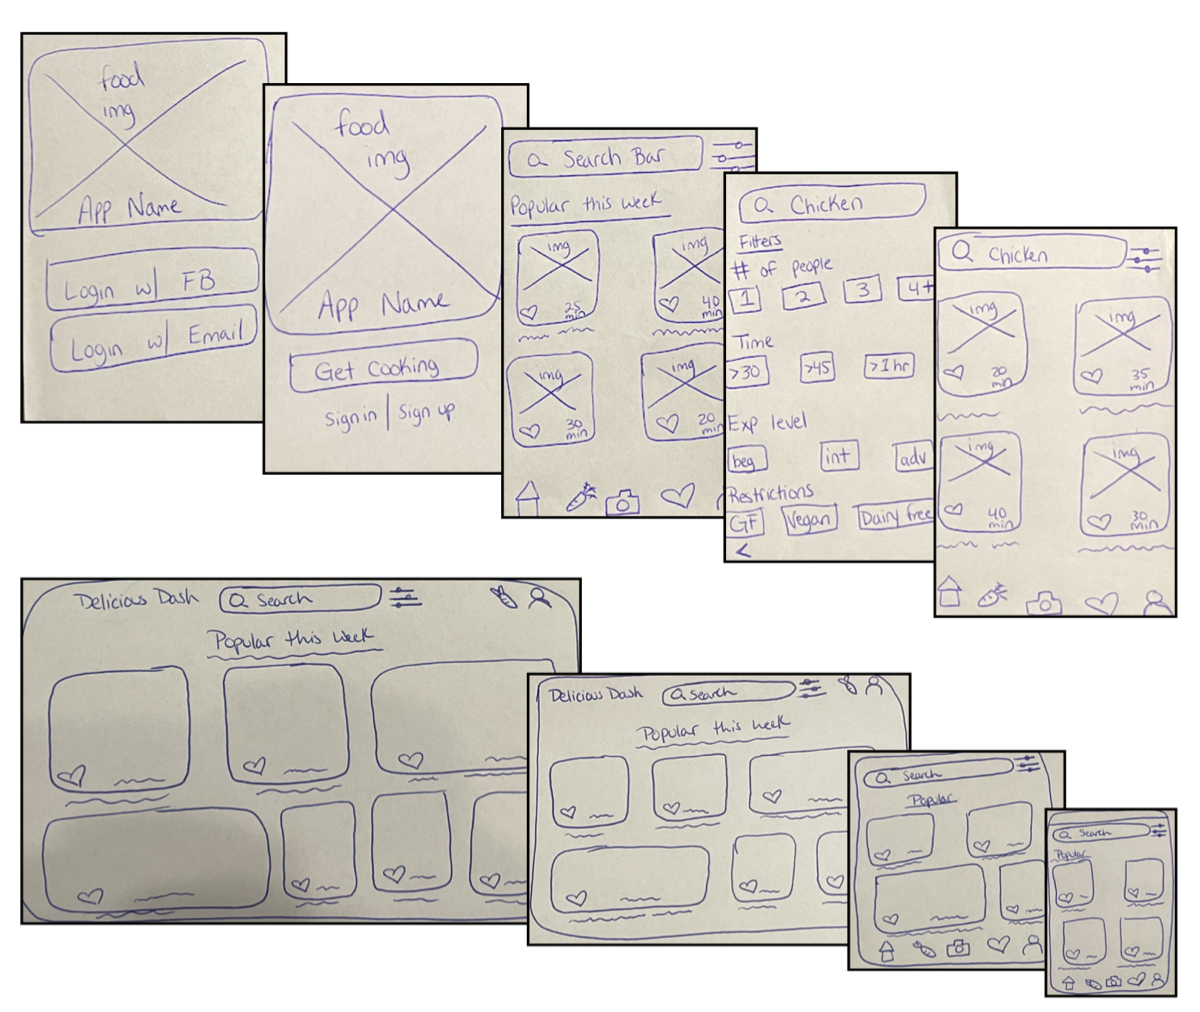 food
img
App Name
Login w/ FB
Login w/ Email
food
img
App Name
Get Cooking
Sign in | Sign up
Search Bar
Popular this week
img
25
min
img
40
min
img
30
min
img
20
min
Chicken
Filters
# of people
1 2 3 4+
Time
>30 >45 >1hr
Exp level
beg int adv
Restrictions
GF Vegan Dairy free
<
Chicken
img
20
min
img
35
min
img
40
min
img
30
min
Delicious Dash Search
Popular this week
Delicious Dash Search
Popular this week
Search
Popular
Search
Popular